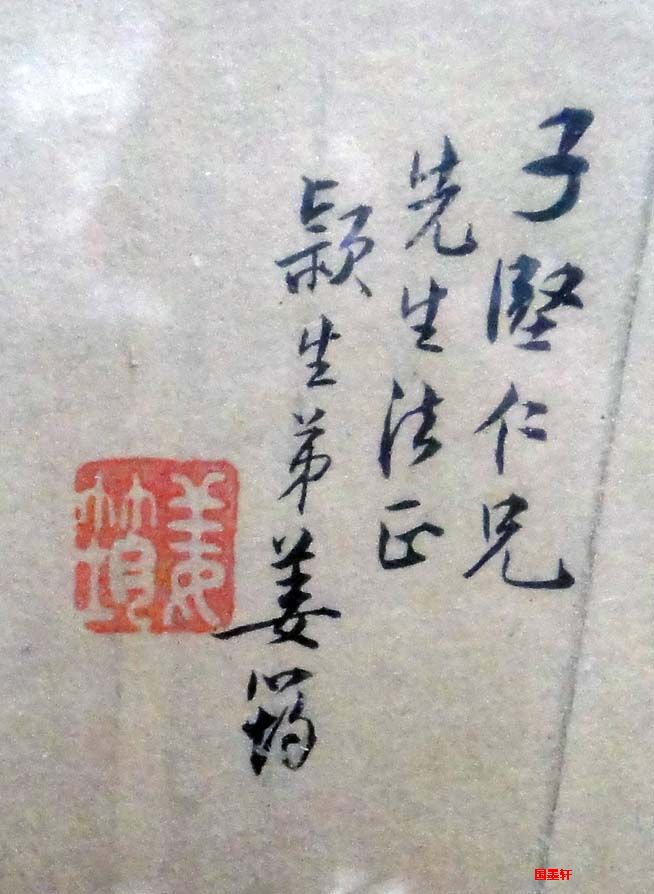 子堅仁兄
先生法正
頴生弟姜筠
姜筠
国墨轩